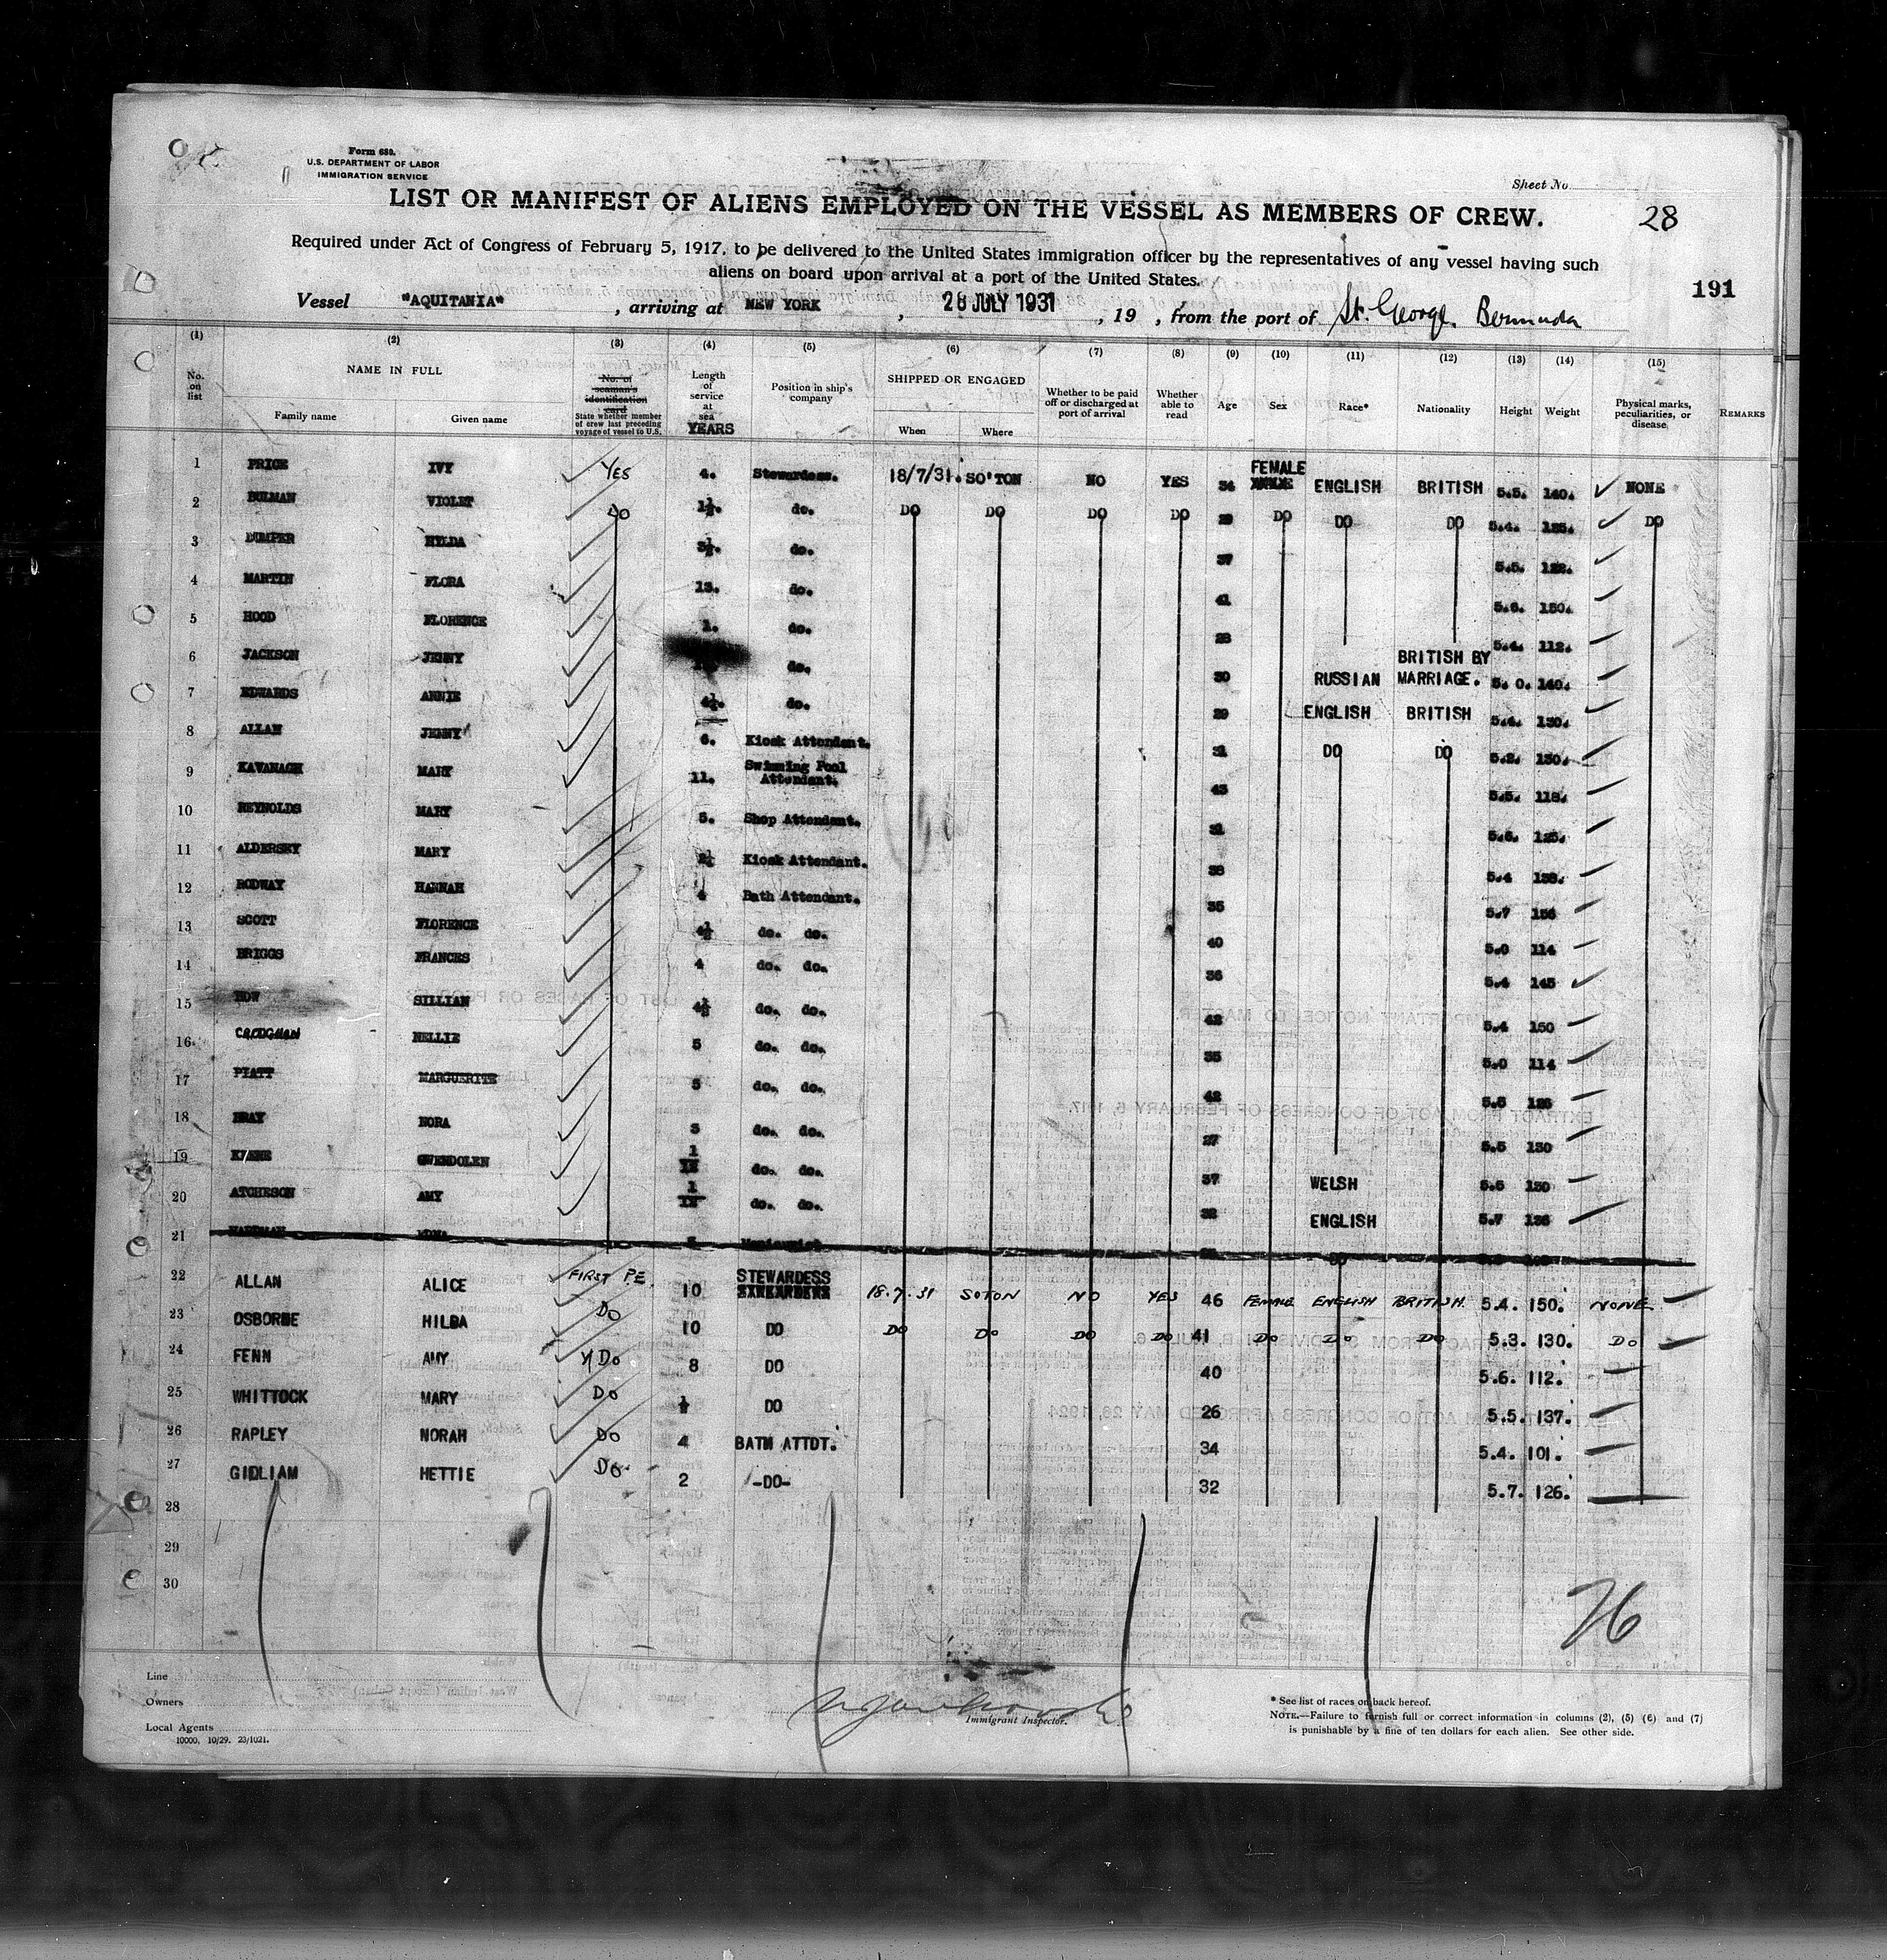 Form 680.
U.S. DEPARTMENT OF LABOR
IMMIGRATION SERVICE
Sheet No.
LIST OR MANIFEST OF ALIENS EMPLOYED ON THE VESSEL AS MEMBERS OF CREW.
28
Required under Act of Congress of February 5, 1917, to be delivered to the United States immigration officer by the representatives of any vessel having such
aliens on board upon arrival at a port of the United States.
191
Vessel "AQUITANIA", arriving at NEW YORK, 28 JULY 1931, 19 , from the port of St. George, Bermuda
(1) (2) (3) (4) (5) (6) (7) (8) (9) (10) (11) (12) (13) (14) (15)
No. on list
NAME IN FULL
Family name Given name
No. of seaman's identification card
State whether member of crew last preceding voyage of vessel to U.S.
Length of service at sea
YEARS
Position in ship's company
SHIPPED OR ENGAGED
When Where
Whether to be paid off or discharged at port of arrival
Whether able to read
Age Sex Race* Nationality Height Weight
Physical marks, peculiarities, or disease
REMARKS
1 PRICE IVY YES 4. Stewardess. 18/7/31. SO'TON NO YES 34 FEMALE ENGLISH BRITISH 5.5. 140. NONE
2 BULMAN VIOLET DO 1½. do. DO DO DO DO 29 DO DO DO 5.4. 125. DO
3 DUMPER HYLDA 3½. do. 37 5.5. 122.
4 MARTIN FLORA 13. do. 41 5.6. 130.
5 HOOD FLORENCE 1. do. 28 5.4. 112.
6 JACKSON JENNY do. 30 RUSSIAN BRITISH BY MARRIAGE. 5.0. 140.
7 EDWARDS ANNIE 4½. do. 29 ENGLISH BRITISH 5.4. 130.
8 ALLAN JENNY 6. Kiosk Attendant. 31 DO DO 5.2. 130.
9 KAVANAGH MARY 11. Swimming Pool Attendant. 43 5.5. 118.
10 REYNOLDS MARY 5. Shop Attendant. 31 5.6. 125.
11 ALDERSEY MARY 2½ Kiosk Attendant. 38 5.4 138.
12 RODWAY HANNAH 4 Bath Attendant. 35 5.7 156
13 SCOTT FLORENCE 4½ do. do. 40 5.0 114
14 BRIGGS FRANCES 4 do. do. 36 5.4 145
15 HOW GILLIAN 4½ do. do. 42 5.4 150
16 CROUGHAN NELLIE 5 do. do. 35 5.0 114
17 PIATT MARGUERITE 5 do. do. 42 5.5 126
18 BRAY NORA 3 do. do. 27 5.5 130
19 GWENDOLEN 1/12 do. do. 37 WELSH 5.5 130
20 ATCHESON AMY 1/12 do. do. 32 ENGLISH 5.7 136
21 HARDMAN EDNA DO
22 ALLAN ALICE FIRST PE. 10 STEWARDESS 18.7.31 SOTON NO YES 46 FEMALE ENGLISH BRITISH 5.4. 150. NONE
23 OSBORNE HILDA DO 10 DO DO DO DO DO 41 DO DO DO 5.3. 130. DO
24 FENN AMY DO 8 DO 40 5.6. 112.
25 WHITTOCK MARY DO DO 26 5.5. 137.
26 RAPLEY NORAH DO 4 BATH ATTDT. 34 5.4. 101.
27 GIDLIAM HETTIE DO 2 -DO- 32 5.7. 126.
28
29
30
26
Line
Owners
Local Agents
10000, 10/29. 23/1021.
Immigrant Inspector.
* See list of races on back hereof.
NOTE.—Failure to furnish full or correct information in columns (2), (5) (6) and (7)
is punishable by a fine of ten dollars for each alien. See other side.